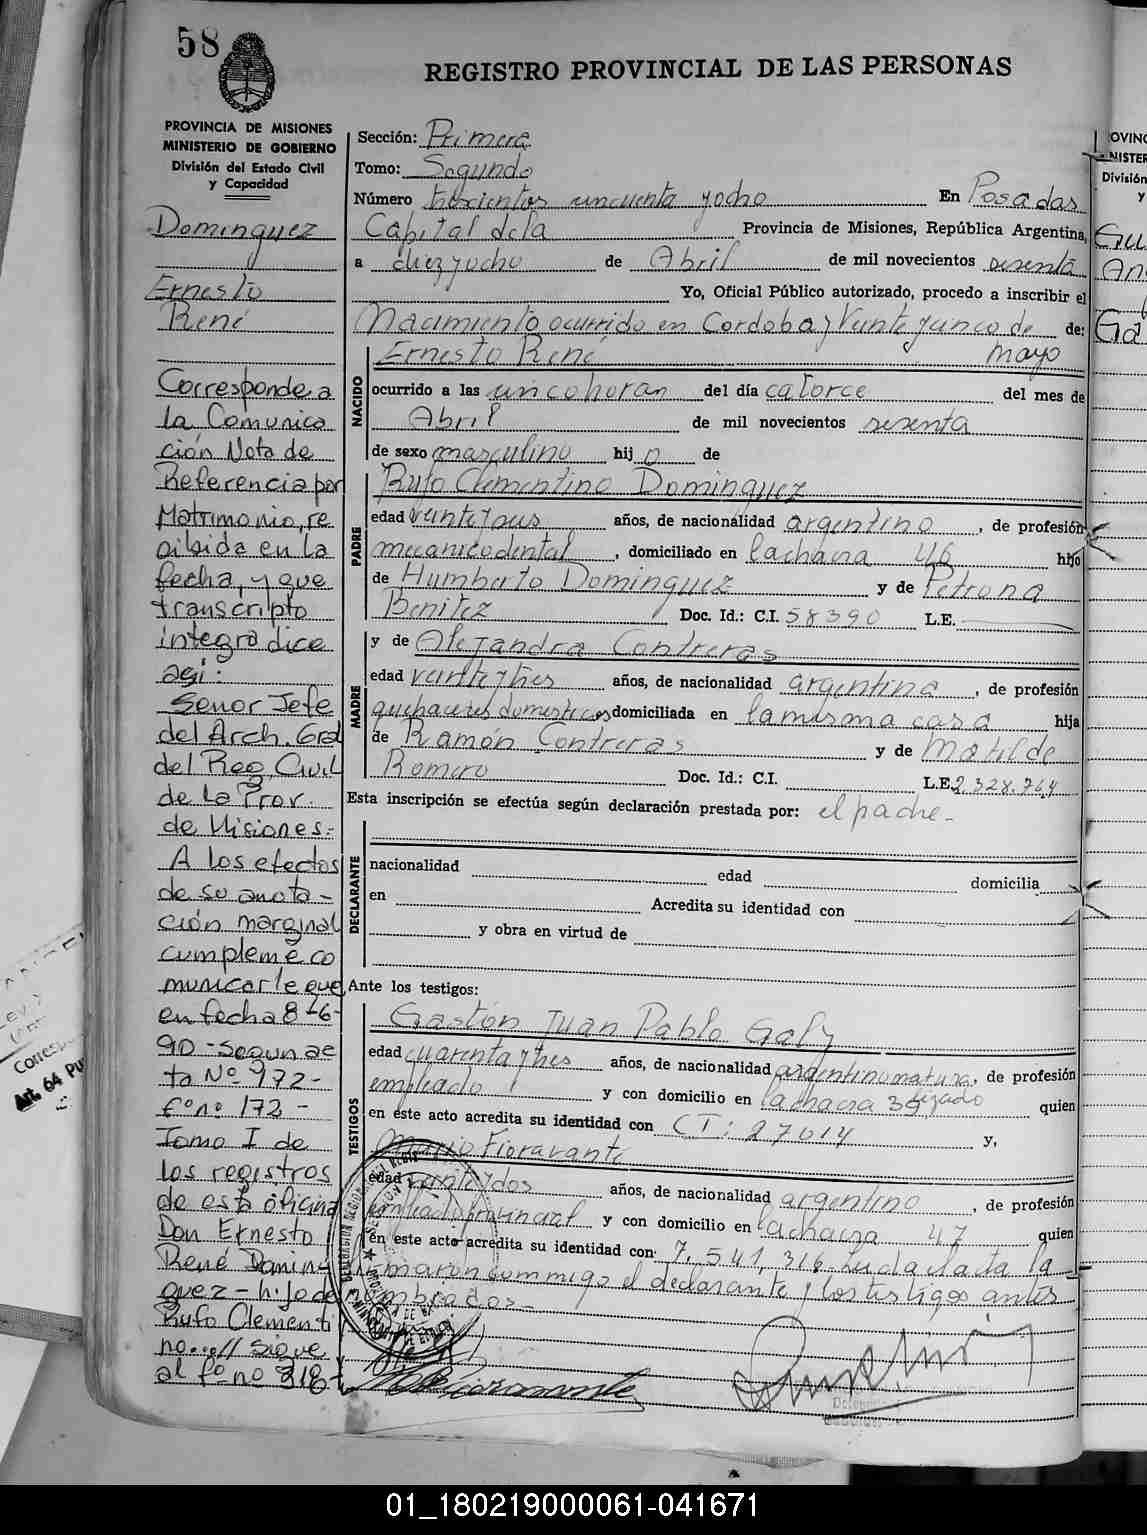 58
REGISTRO PROVINCIAL DE LAS PERSONAS
PROVINCIA DE MISIONES
MINISTERIO DE GOBIERNO
División del Estado Civil
y Capacidad
Dominguez
Ernesto
René
Corresponde a
la Comunica
ción Nota de
Referencia por
Matrimonio, re
cibida en la
fecha, y que
transcripto
integra dice
asi:
Señor Jefe
del Arch. Gral
del Reg. Civil
de la Prov.
de Misiones:
A los efectos
de su anota-
ción marginal
cumpleme co
municarle que
en fecha 8-6-
90 - Segun ac
ta Nº 972-
fº nº 172-
Tomo I de
los registros
de esta oficina
Don Ernesto
René Domin
guez - hijo de
Rufo Clementi
no...// sigue
al fº nº 318
Sección: Primera
Tomo: Segundo
Número trescientos cincuenta y ocho En Posadas
Capital de la Provincia de Misiones, República Argentina,
a diez y ocho de Abril de mil novecientos sesenta
Yo, Oficial Público autorizado, procedo a inscribir el
Nacimiento ocurrido en Cordoba y Veinte y cinco de de:
mayo
NACIDO
Ernesto René
ocurrido a las cinco horas del día catorce del mes de
Abril de mil novecientos sesenta
de sexo masculino hijo de
PADRE
Rufo Clementino Dominguez
edad años, de nacionalidad argentino, de profesión
mecanico dental, domiciliado en la chacra 46 hijo
de Humberto Dominguez y de Petrona
Benitez Doc. Id.: C.I. 58390 L.E.
MADRE
y de Alejandra Contreras
edad veinte y tres años, de nacionalidad argentina, de profesión
quehaceres domesticos domiciliada en la misma casa hija
de Ramón Contreras y de Matilde
Romero Doc. Id.: C.I. L.E. 2.328.764
Esta inscripción se efectúa según declaración prestada por: el padre-
DECLARANTE
nacionalidad edad domicilia
en Acredita su identidad con
y obra en virtud de
Ante los testigos:
TESTIGOS
Gastón Juan Pablo Galy
edad cuarenta y tres años, de nacionalidad argentino natura, de profesión
lizado
empleado y con domicilio en la chacra 39 quien
en este acto acredita su identidad con CI: 27014 y,
Mario Fioravanti
edad veinte y dos años, de nacionalidad argentino, de profesión
empleado provincial y con domicilio en la chacra 47 quien
en este acto acredita su identidad con 7.541.316. Leida el acta la
firmaron conmigo el declarante y los testigos antes
nombrados-
OVINC
NISTER
División
y
Art. 64
01_180219000061-041671